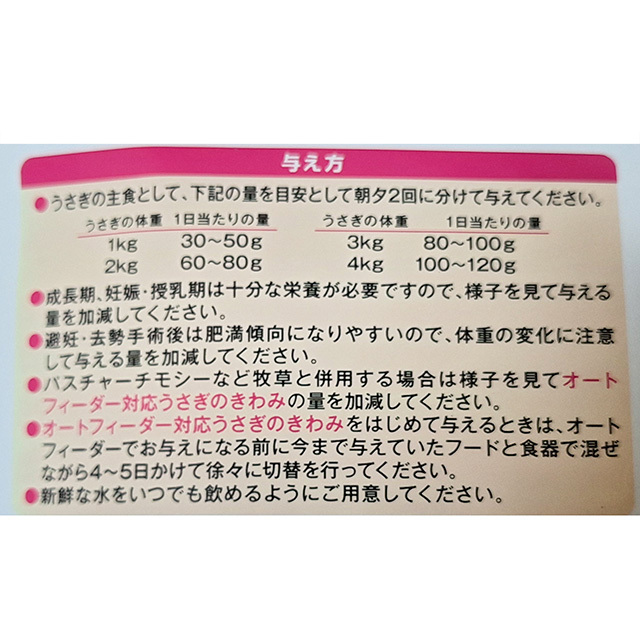 与え方
●うさぎの主食として、下記の量を目安として朝夕2回に分けて与えてください。
うさぎの体重 1日当たりの量 うさぎの体重 1日当たりの量
1kg 30〜50g 3kg 80〜100g
2kg 60〜80g 4kg 100〜120g
●成長期、妊娠・授乳期は十分な栄養が必要ですので、様子を見て与える
量を加減してください。
●避妊・去勢手術後は肥満傾向になりやすいので、体重の変化に注意
して与える量を加減してください。
●パスチャーチモシーなど牧草と併用する場合は様子を見てオート
フィーダー対応うさぎのきわみの量を加減してください。
●オートフィーダー対応うさぎのきわみをはじめて与えるときは、オート
フィーダーでお与えになる前に今まで与えていたフードと食器で混ぜ
ながら4〜5日かけて徐々に切替を行ってください。
●新鮮な水をいつでも飲めるようにご用意してください。